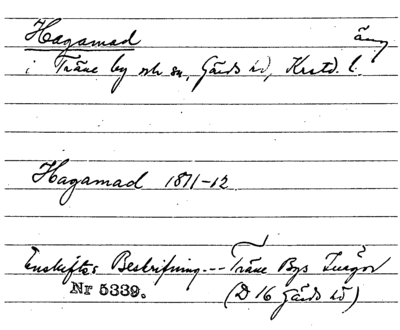 Hagamad äng
i Träne by och sn, Gärds hd, Krstd. l.
Hagamad 1811-12
Enskiftes Beskrifning --- Träne Bys Inägor
Nr 5339. (D 16 Gärds hd)